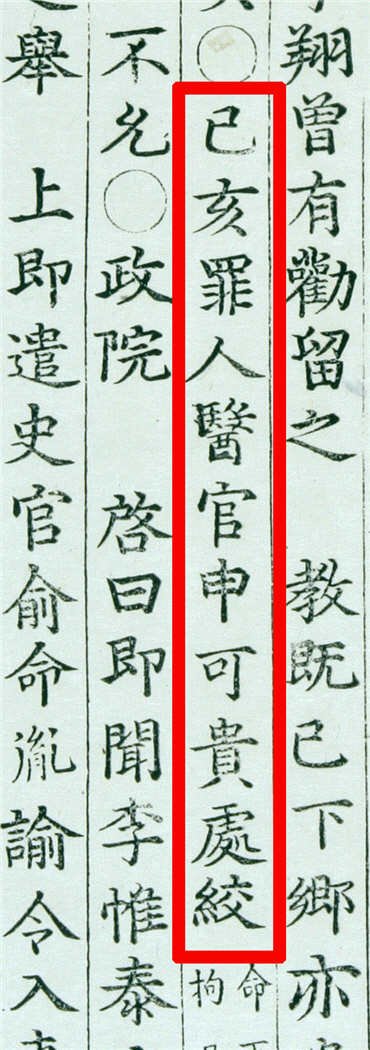 翔曾有勸留之 教既已下鄕亦
○己亥罪人醫官申可貴處絞
命
拘
不允○政院 啓曰即聞李惟泰
擧 上即遣史官俞命胤諭令入